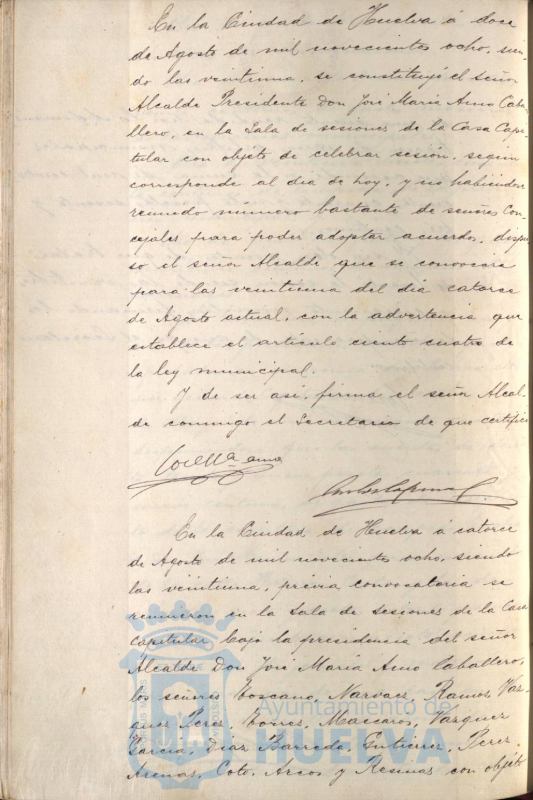 En la Ciudad de Huelva á doce
de Agosto de mil novecientos ocho, sien-
do las veintiuna, se constituyó el señor
Alcalde Presidente Don José María Amo Caba-
llero, en la Sala de sesiones de la Casa Capi-
tular con objeto de celebrar sesión, según
corresponde al día de hoy, y no habiendose
reunido número bastante de señores Con-
cejales para poder adoptar acuerdo, dispu-
so el señor Alcalde que se convocara
para las veintiuna del día catorce
de Agosto actual, con la advertencia que
establece el artículo ciento cuatro de
la ley municipal.
Y de ser así, firma el señor Alcal-
de conmigo el Secretario de que certifico
José Mª Amo
En la Ciudad de Huelva á catorce
de Agosto de mil novecientos ocho, siendo
las veintiuna, previa convocatoria se
reunieron en la Sala de Sesiones de la Casa
Capitular bajo la presidencia del señor
Alcalde Don José María Amo Caballero,
los señores Toscano, Narvaez, Ramos, Vaz-
quez Perez, Torres, Maccaros, Vazquez
García, Díaz Barreda, Gutierrez, Perez
Arenas, Coto, Arcos y Resinas con objeto
Ayuntamiento de
HUELVA